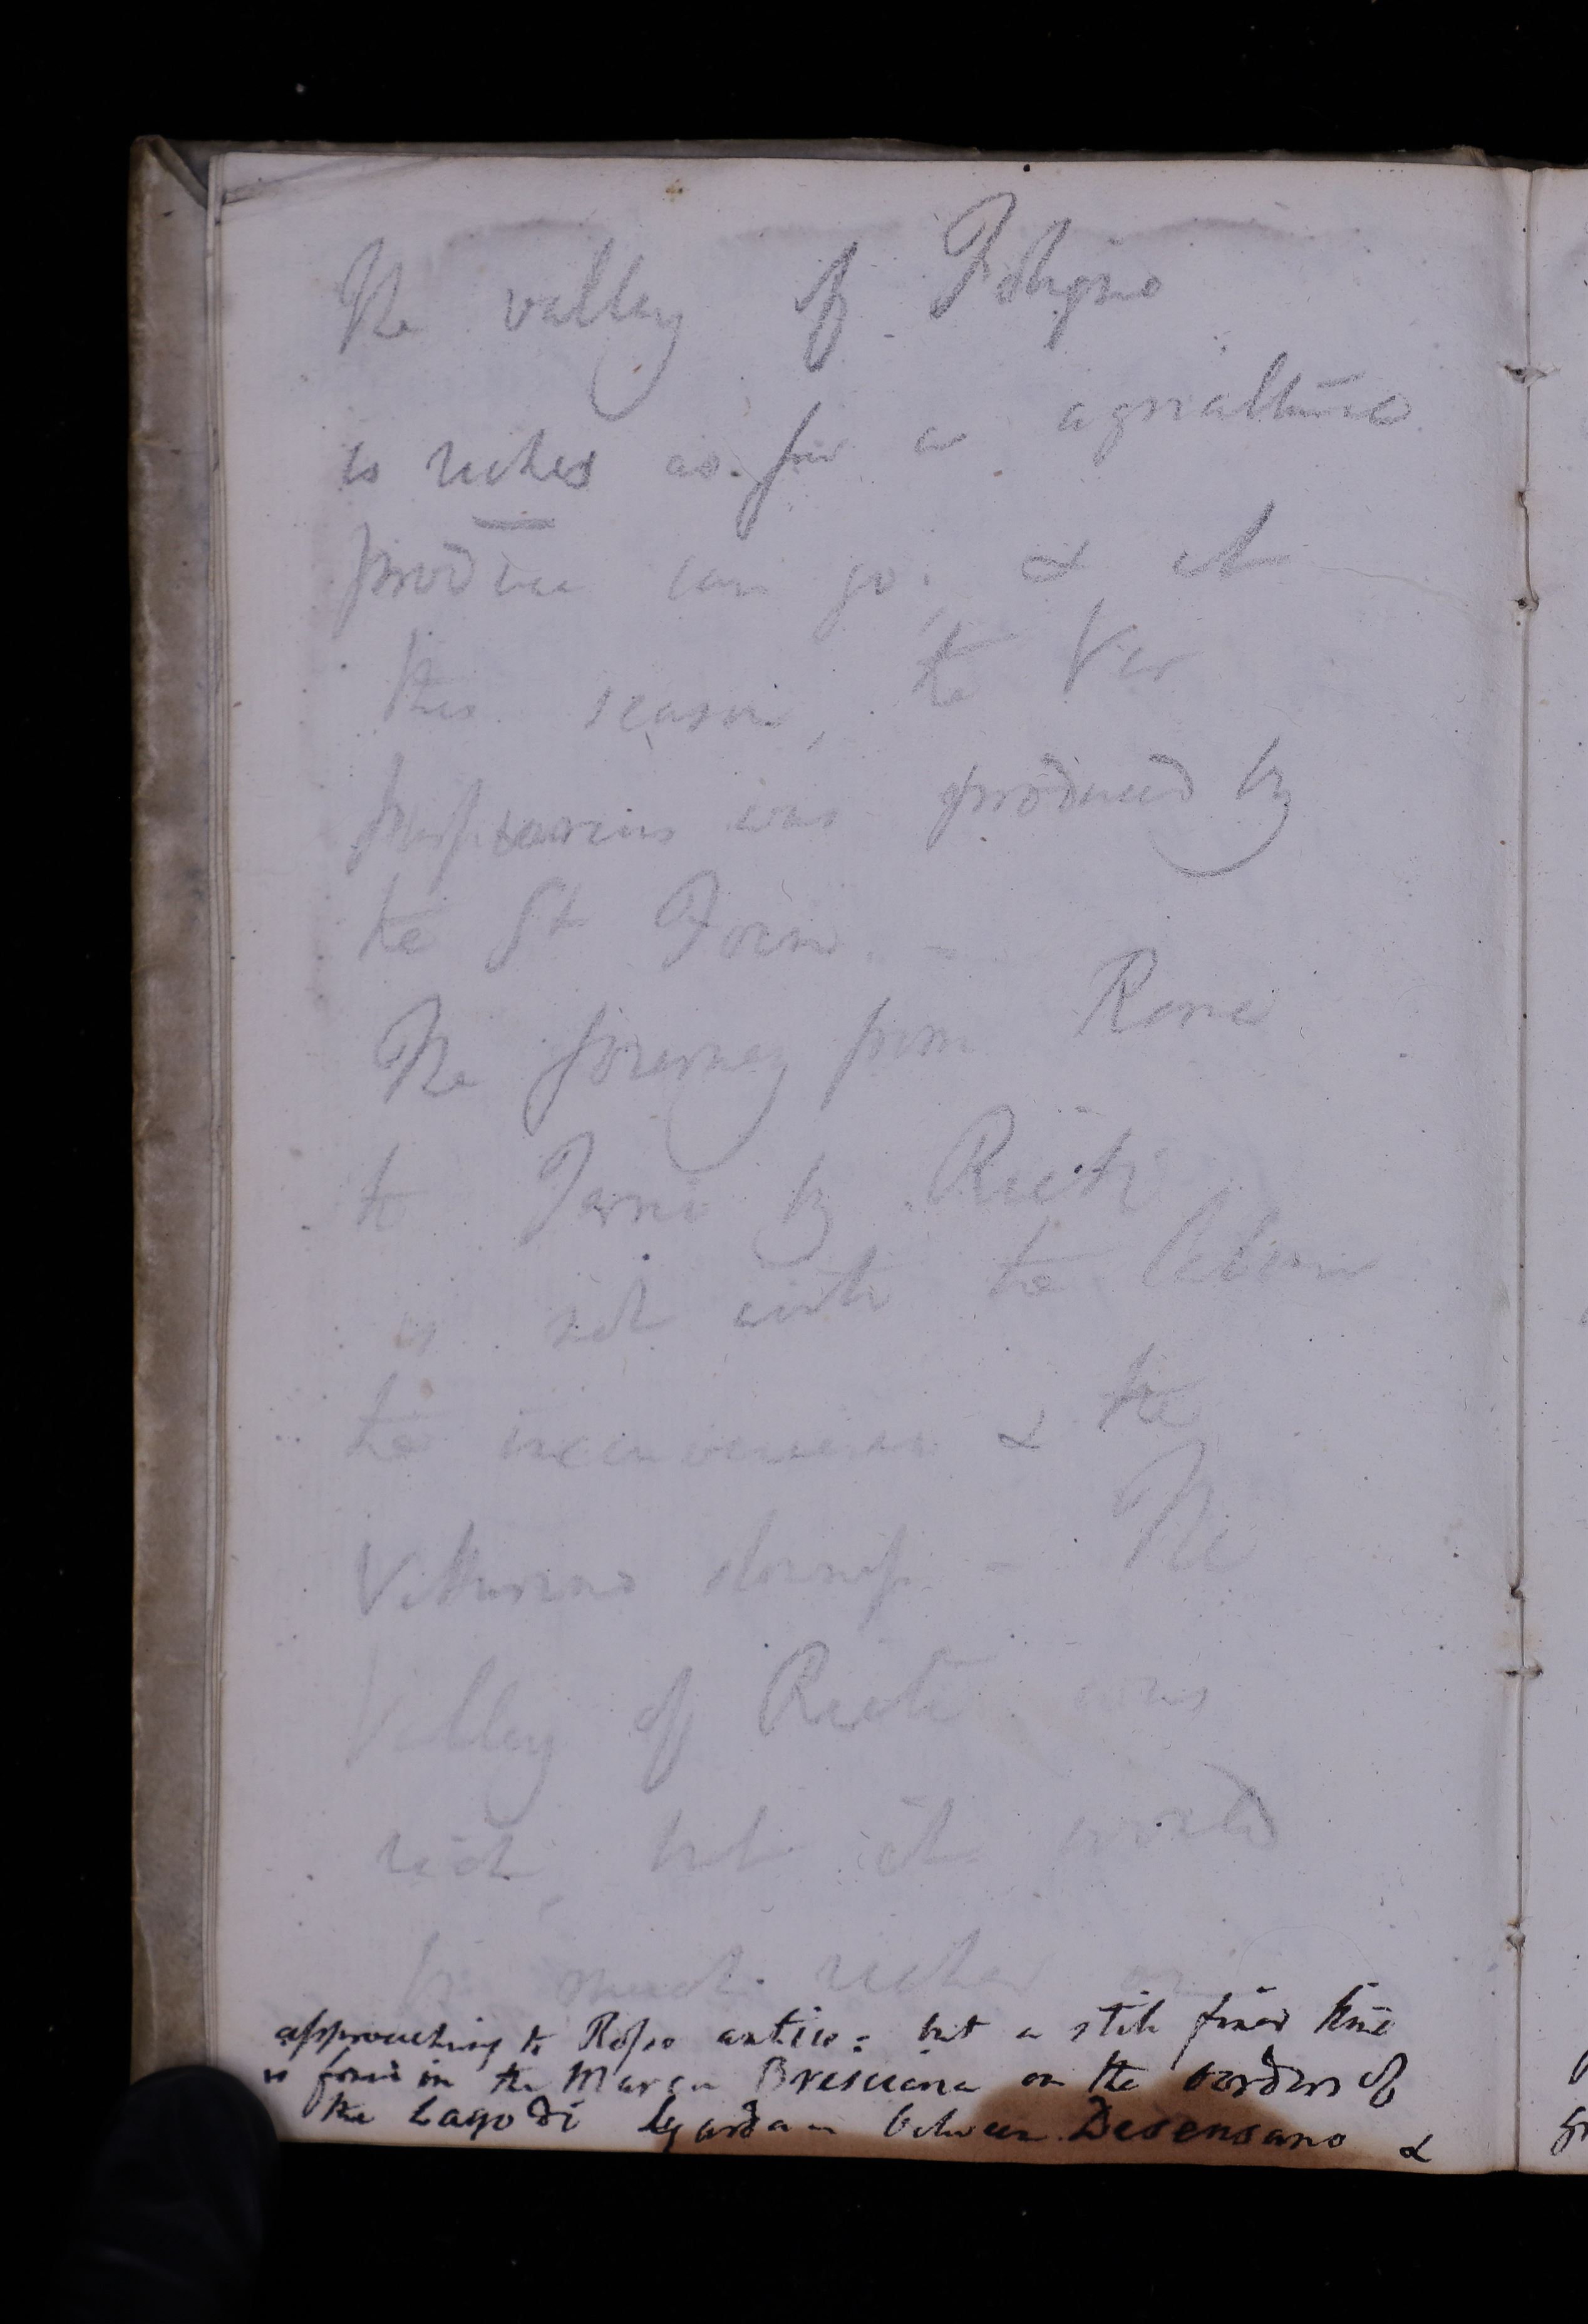 The valley of Foligno
is riches as far as agriculture
produce can go; & at
this season, the Ver
purpureum was produced by
the St Foin. -
The journey from Rome
to Terni by Rieti
is not worth the labour
the inconvenience & the
Vetturino
Valley of Rieti was
rich, but it would
be much richer
approaching to Rosso antico: but a still finer kind
is found in the Marca Bresciana on the borders of
the Lago di Garda between Desensano &